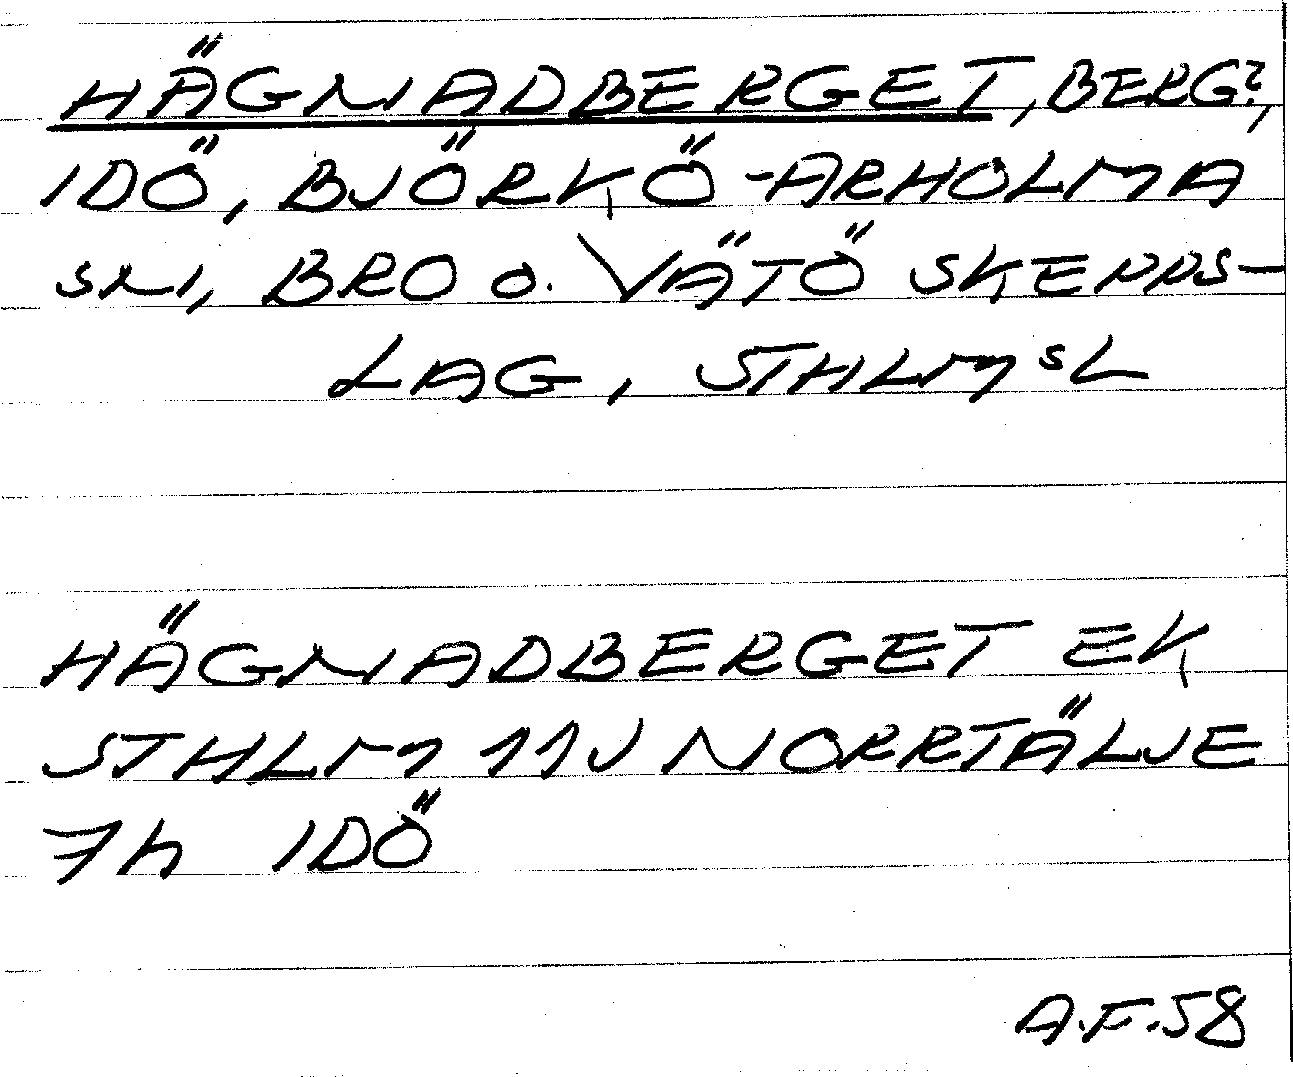 HÄGNADBERGET, BERG?,
IDÖ, BJÖRKÖ-ARHOLMA
SN, BRO O. VÄTÖ SKEPPS-
LAG, STHLMSL
HÄGNADBERGET EK
STHLM 11J NORRTÄLJE
7h IDÖ
A.F.58